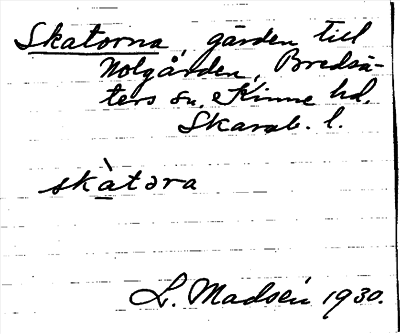 Skatorna, gärden till
Nolgården, Bredsä-
ters sn. Kinne hd.
Skarab. l.
skàtəra
L. Madsén 1930.